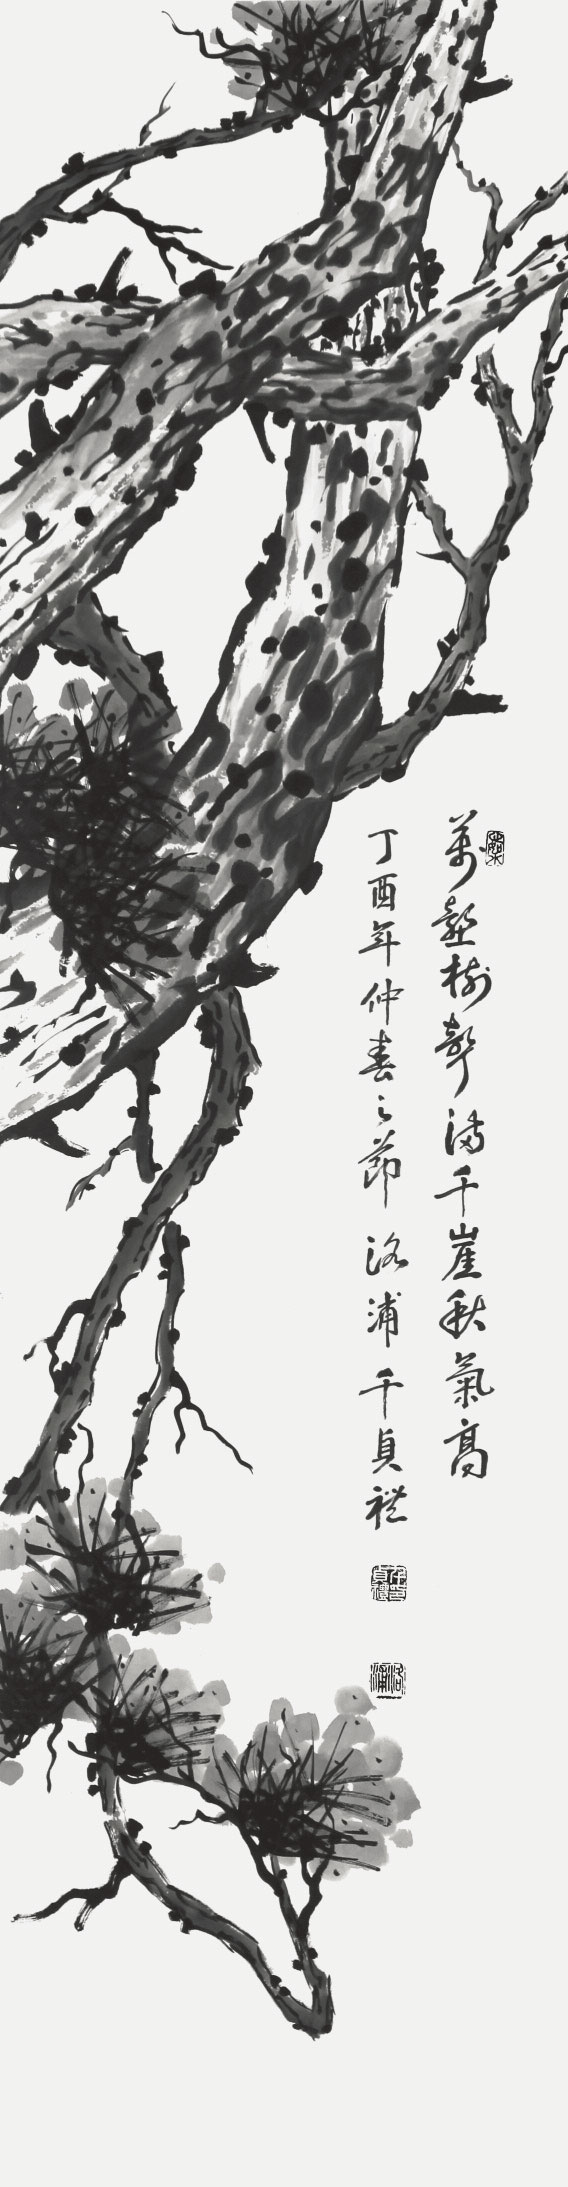 萬壑樹聲滿千崖秋氣高
丁酉年仲春之節 洛浦 千貞禮